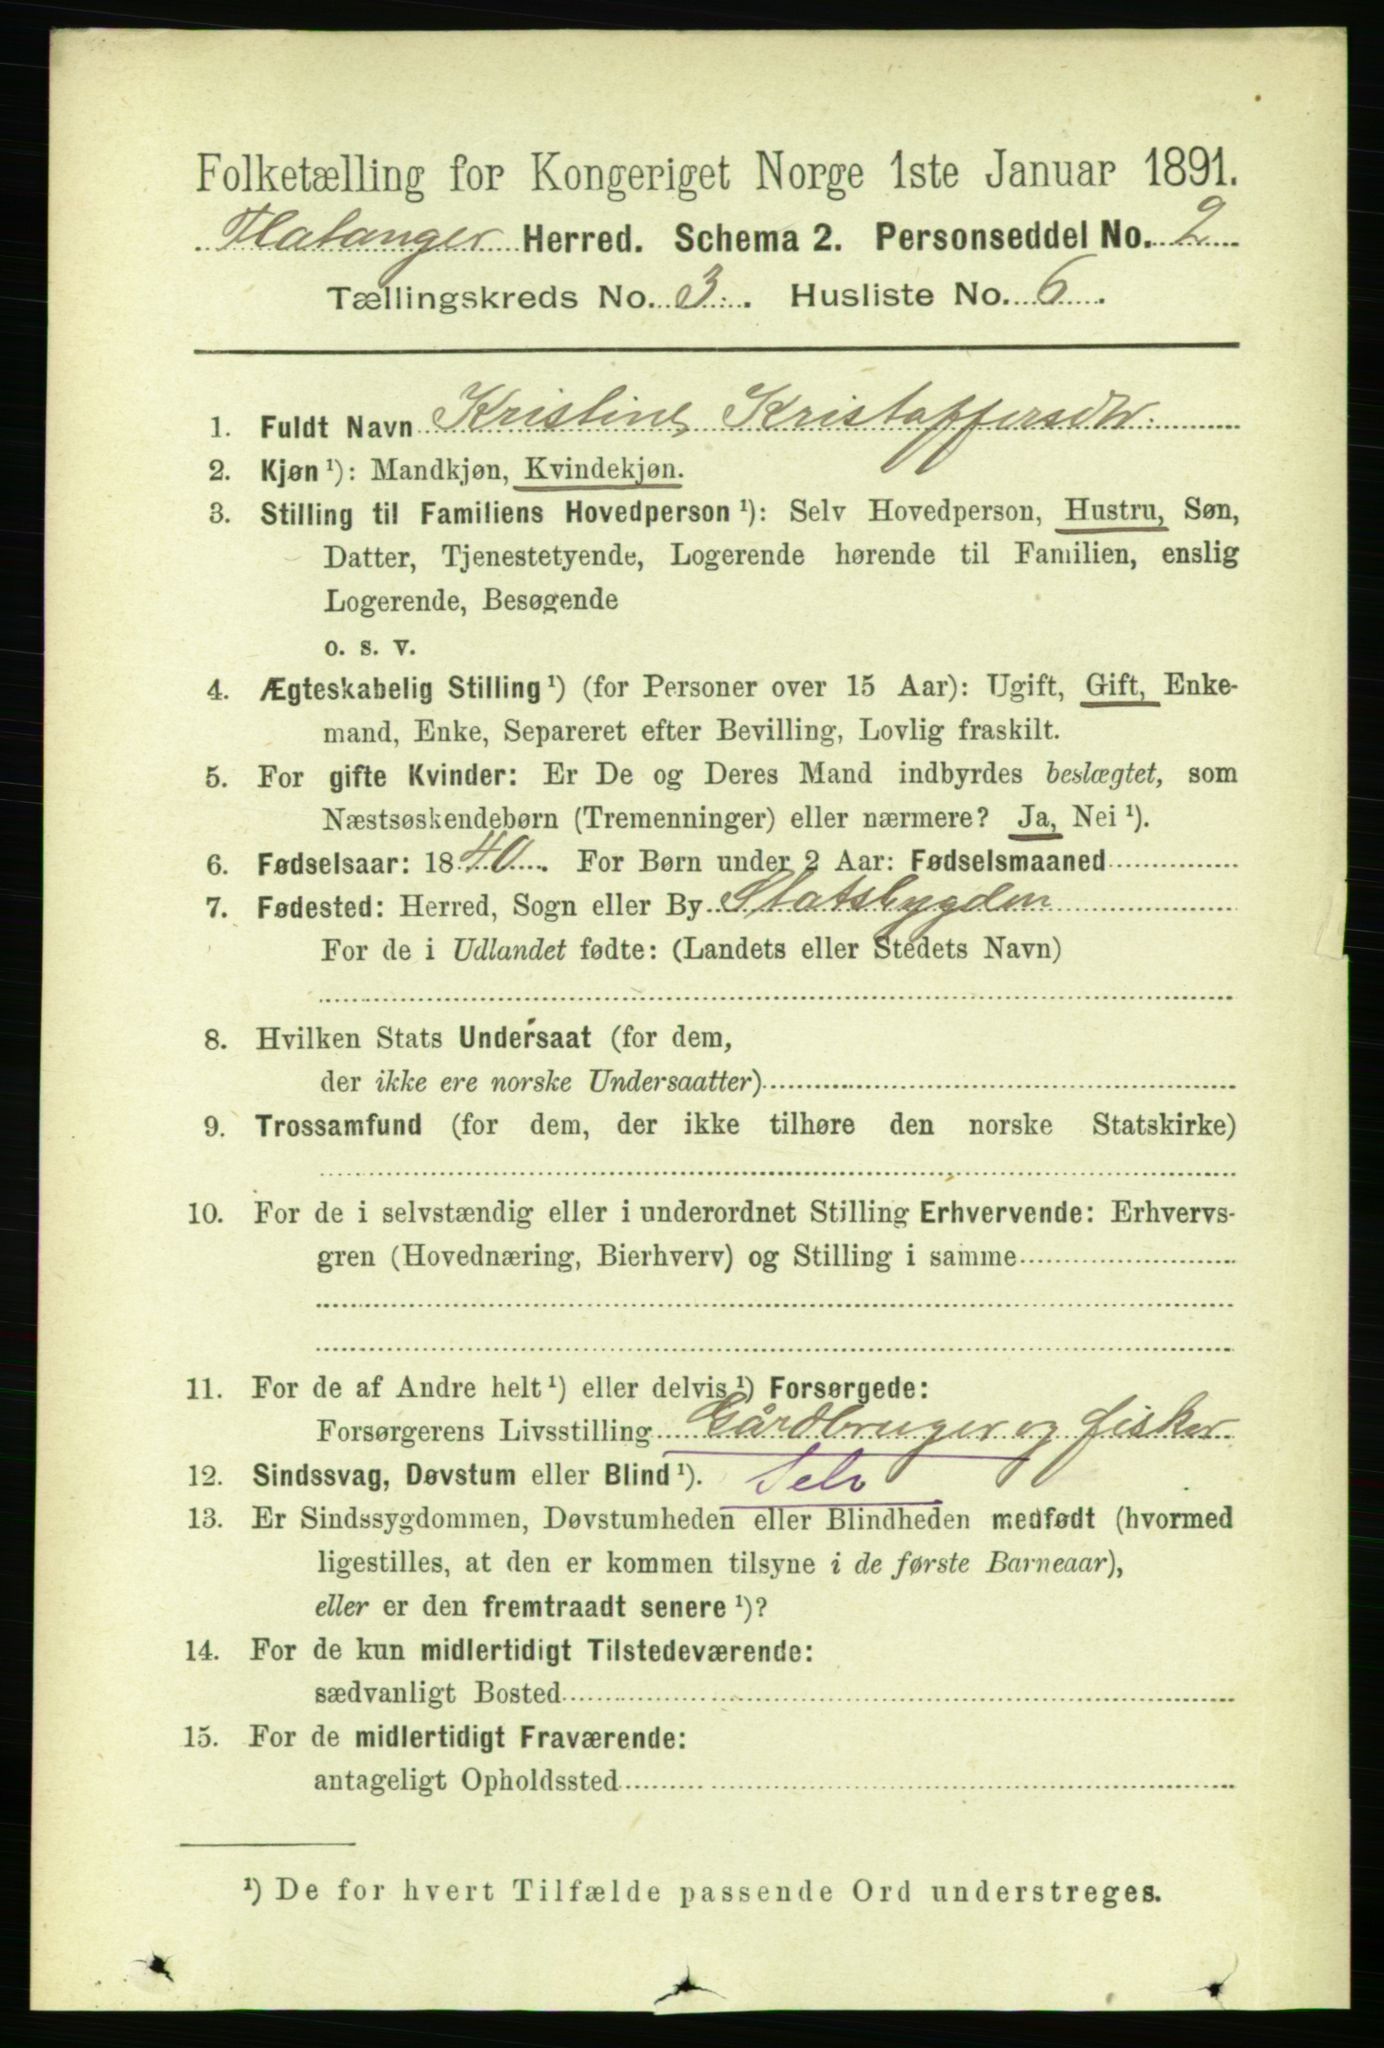 Folketælling for Kongeriget Norge 1ste Januar 1891.
Flatanger Herred. Schema 2. Personseddel No. 2
Tællingskreds No. 3. Husliste No. 6.
1. Fuldt Navn Kristine Kristoffersdtr.
2. Kjøn ¹): Mandkjøn, Kvindekjøn.
3. Stilling til Familiens Hovedperson ¹): Selv Hovedperson, Hustru, Søn,
Datter, Tjenestetyende, Logerende hørende til Familien, enslig
Logerende, Besøgende
o. s. v.
4. Ægteskabelig Stilling ¹) (for Personer over 15 Aar): Ugift, Gift, Enke-
mand, Enke, Separeret efter Bevilling, Lovlig fraskilt.
5. For gifte Kvinder: Er De og Deres Mand indbyrdes beslægtet, som
Næstsøskendebørn (Tremenninger) eller nærmere? Ja, Nei ¹).
6. Fødselsaar: 1840. For Børn under 2 Aar: Fødselsmaaned
7. Fødested: Herred, Sogn eller By Statsbygden
For de i Udlandet fødte: (Landets eller Stedets Navn)
8. Hvilken Stats Undersaat (for dem,
der ikke ere norske Undersaatter)
9. Trossamfund (for dem, der ikke tilhøre den norske Statskirke)
10. For de i selvstændig eller i underordnet Stilling Erhvervende: Erhvervs-
gren (Hovednæring, Bierhverv) og Stilling i samme
11. For de af Andre helt ¹) eller delvis ¹) Forsørgede:
Forsørgerens Livsstilling Gårdbruger og fisker
12. Sindssvag, Døvstum eller Blind ¹). Selv
13. Er Sindssygdommen, Døvstumheden eller Blindheden medfødt (hvormed
ligestilles, at den er kommen tilsyne i de første Barneaar),
eller er den fremtraadt senere ¹)?
14. For de kun midlertidigt Tilstedeværende:
sædvanligt Bosted
15. For de midlertidigt Fraværende:
antageligt Opholdssted
¹) De for hvert Tilfælde passende Ord understreges.